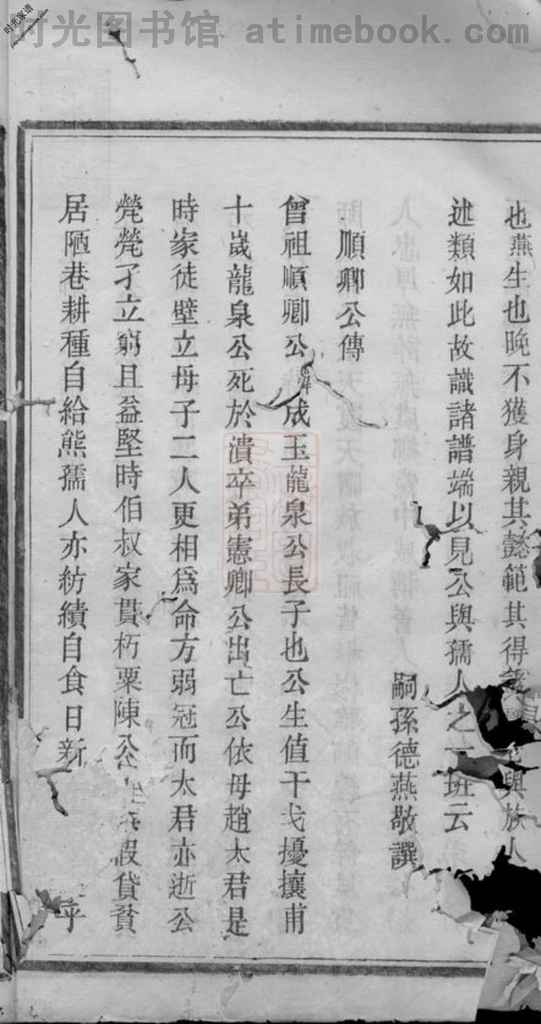 时光图书馆 atimebook.com
也燕生也晚不獲身親其懿範其得與族人
述類如此故識諸譜端以見公與孺人之一班云
嗣孫德燕敬譔
順卿公傳
曾祖順卿公成玉龍泉公長子也公生值干戈擾攘甫
十歲龍泉公死於潰卒弟憲卿公出亡公依母趙太君是
時家徒壁立母子二人更相爲命方弱冠而太君亦逝公
煢煢孑立窮且益堅時伯叔家貫朽粟陳公假貸貧
居陋巷耕種自給熊孺人亦紡績自食日新乎